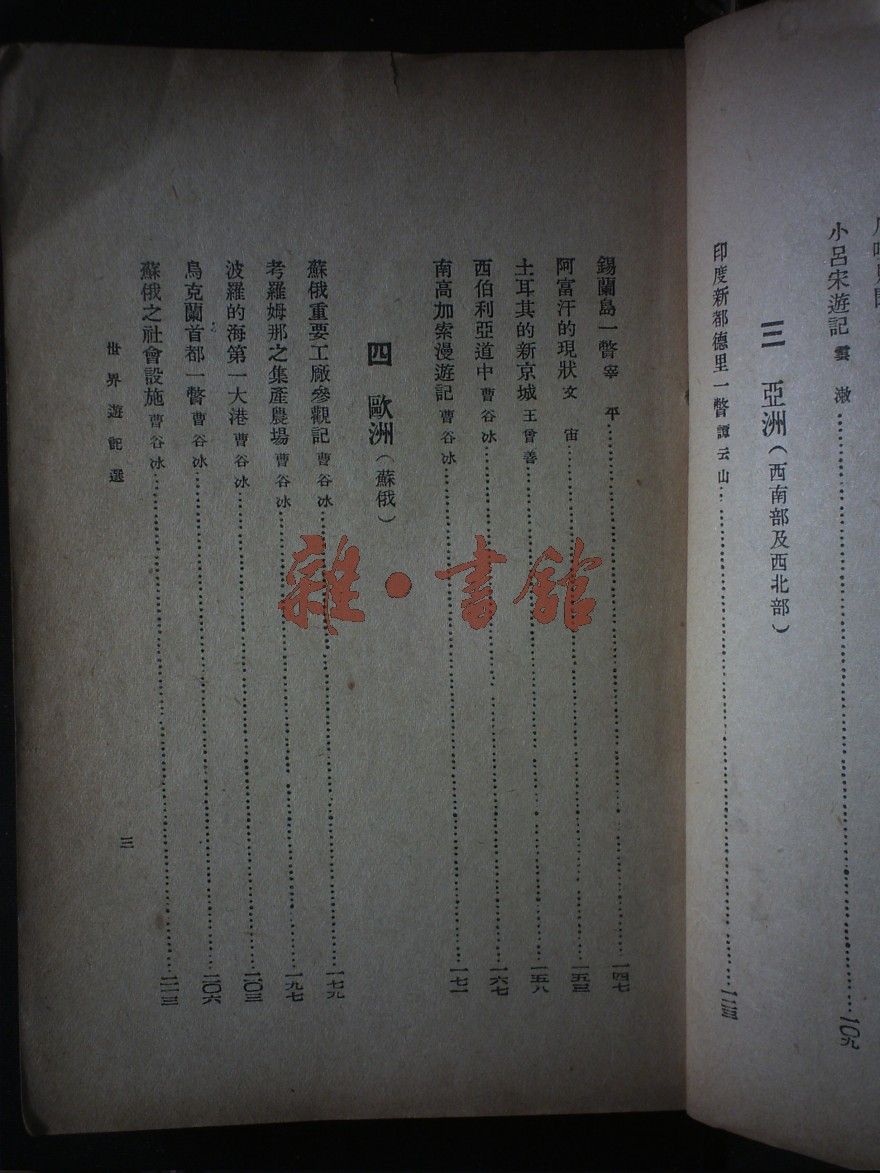 小呂宋遊記 雲澂……一〇九
三 亞洲（西南部及西北部）
印度新都德里一瞥 譚云山……一二三
錫蘭島一瞥 宰平……一四七
阿富汗的現狀 文宙……一五三
土耳其的新京城 王曾善……一五八
西伯利亞道中 曹谷冰……一六七
南高加索漫遊記 曹谷冰……一七一
四 歐洲（蘇俄）
蘇俄重要工廠參觀記 曹谷冰……一七九
考羅姆那之集產農場 曹谷冰……一九七
波羅的海第一大港 曹谷冰……二〇三
烏克蘭首都一瞥 曹谷冰……二〇六
蘇俄之社會設施 曹谷冰……二一三
世界遊記選
三
雜·書館